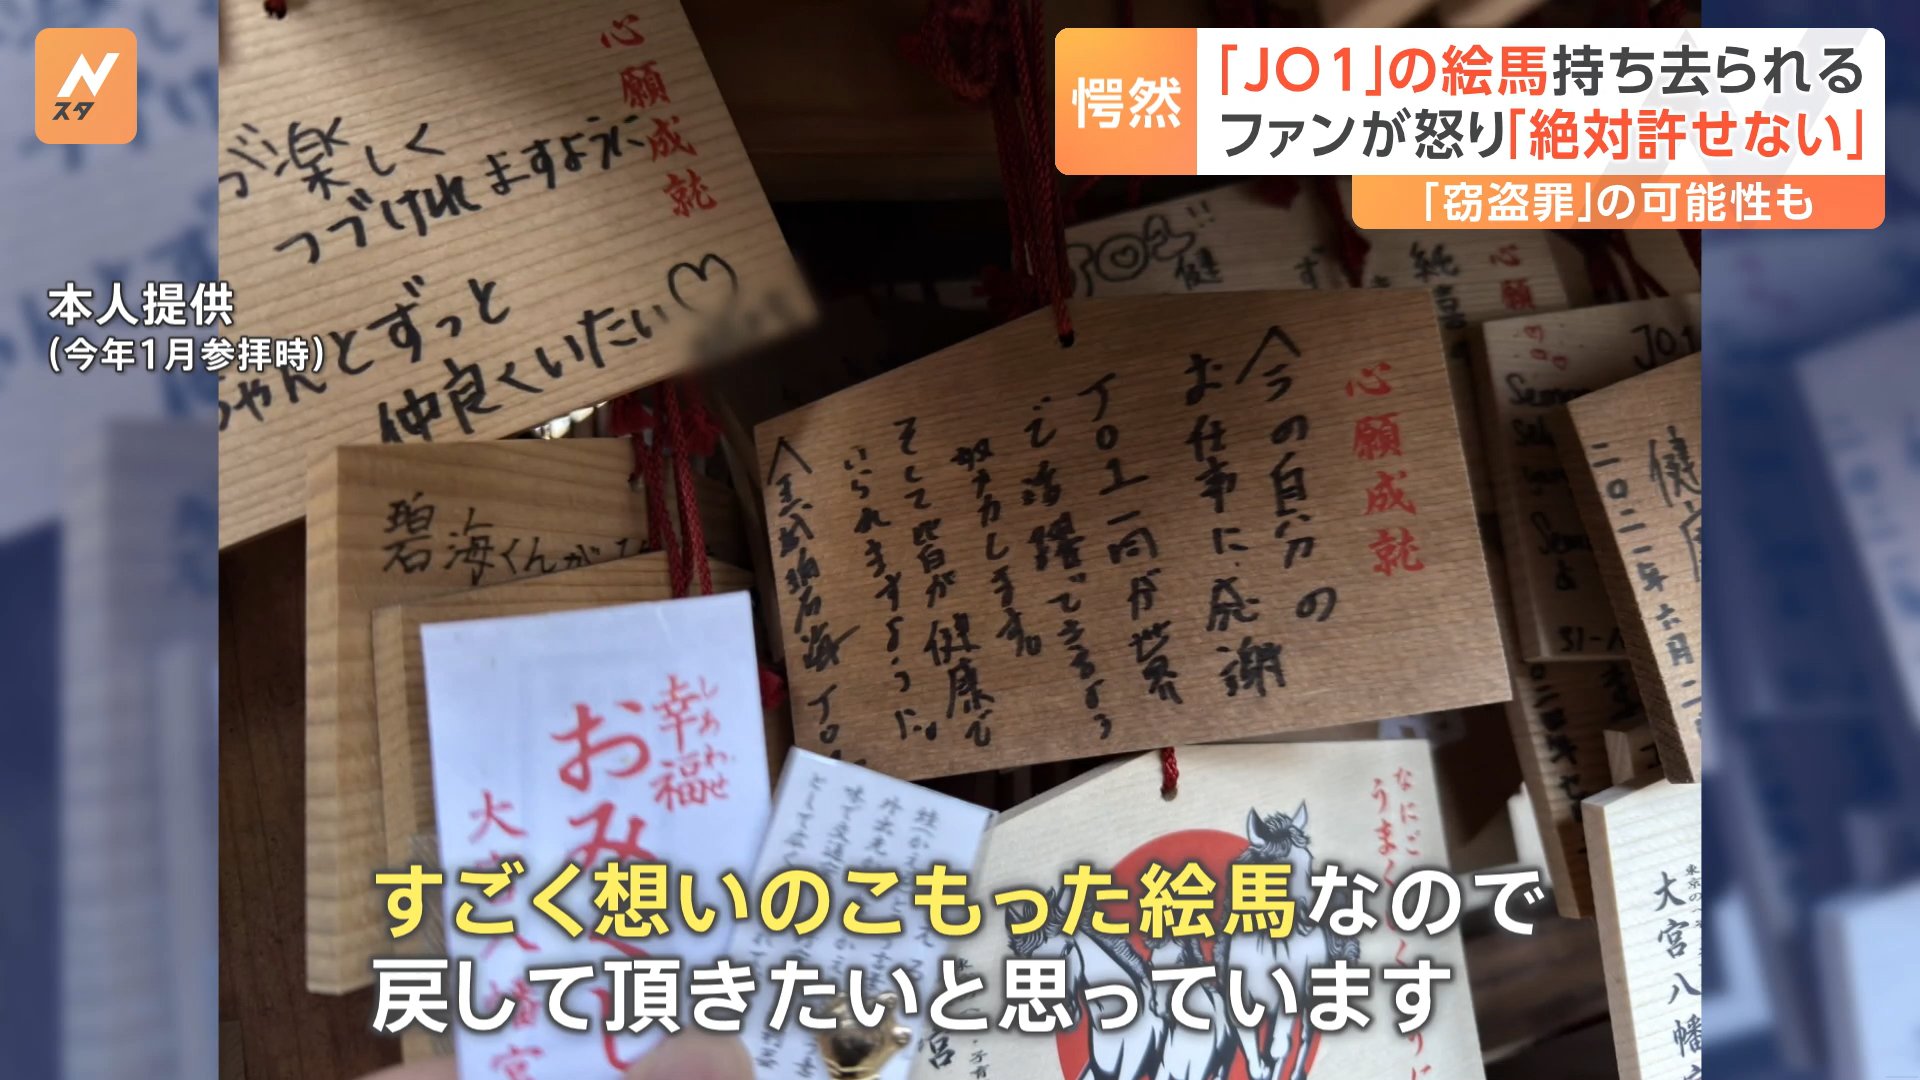 Nスタ
愕然
「JO1」の絵馬持ち去られる
ファンが怒り「絶対許せない」
「窃盗罪」の可能性も
本人提供
(今年1月参拝時)
心願成就
が楽しく
つづけれますように
ちゃんとずっと
仲良くいたい♡
JO1!!
健
純喜
心願
JO1
心願成就
今の自分の
お仕事に感謝
JO1一同が世界
で活躍できるよう
努力します。
そして皆が健康で
いられますように。
金城碧海 JO
碧海くんが
健康
二〇二一年六月二
幸福
しあわせ
おみくじ
大宮八幡宮
なにご
うまく
大宮八幡
宮
すごく想いのこもった絵馬なので
戻して頂きたいと思っています